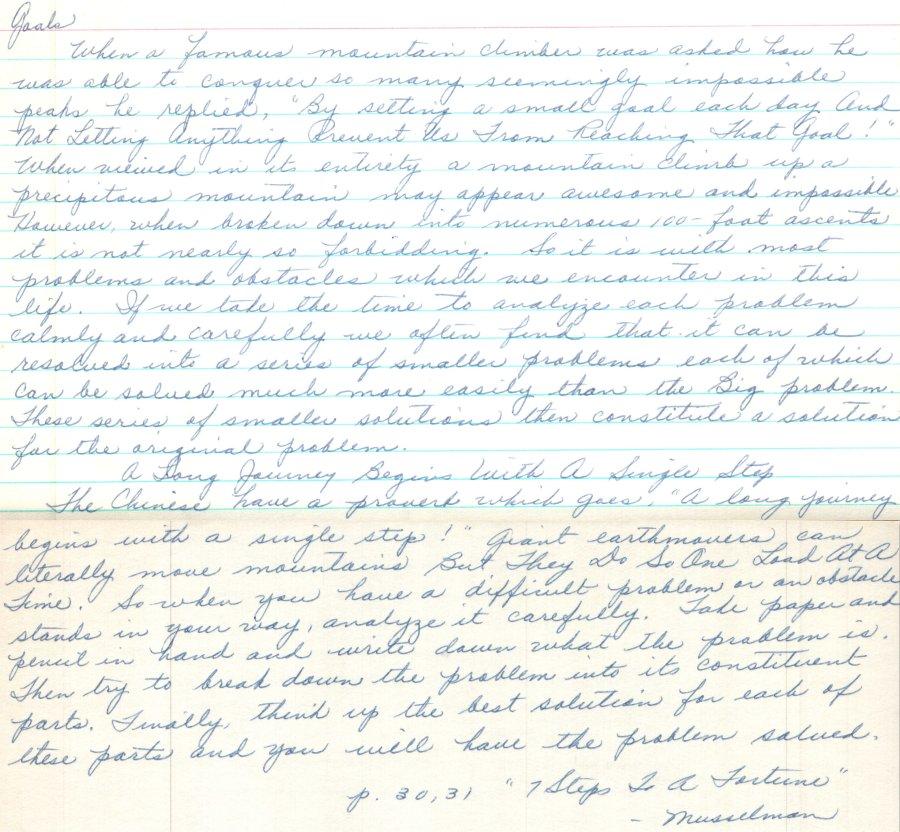 Goals
When a famous mountain climber was asked how he
was able to conquer so many seemingly impossible
peaks he replied, "By setting a small goal each day And
Not Letting Anything Prevent Us From Reaching That Goal!"
When viewed in its entirety a mountain climb up a
precipitous mountain may appear awesome and impossible
However, when broken down into numerous 100-foot ascents
it is not nearly so forbidding. So it is with most
problems and obstacles which we encounter in this
life. If we take the time to analyze each problem
calmly and carefully we often find that it can be
resolved into a series of smaller problems each of which
can be solved much more easily than the Big problem.
These series of smaller solutions then constitute a solution
for the original problem.
A Long Journey Begins With A Single Step
The Chinese have a proverb which goes, "A long journey
begins with a single step!" Giant earthmovers can
literally move mountains But They Do So One Load At A
Time. So when you have a difficult problem or an obstacle
stands in your way, analyze it carefully. Take paper and
pencil in hand and write down what the problem is.
Then try to break down the problem into its constituent
parts. Finally, think up the best solution for each of
these parts and you will have the problem solved.
p. 30,31 "7 Steps To A Fortune"
- Musselman